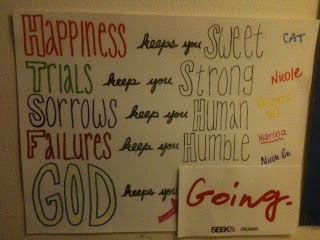 Happiness keeps you Sweet
Trials keep you Strong
Sorrows keep you Human
Failures keep you Humble
GOD keeps you Going.
CAT
Nicole
Marina
Nicole Bo.
SEEK